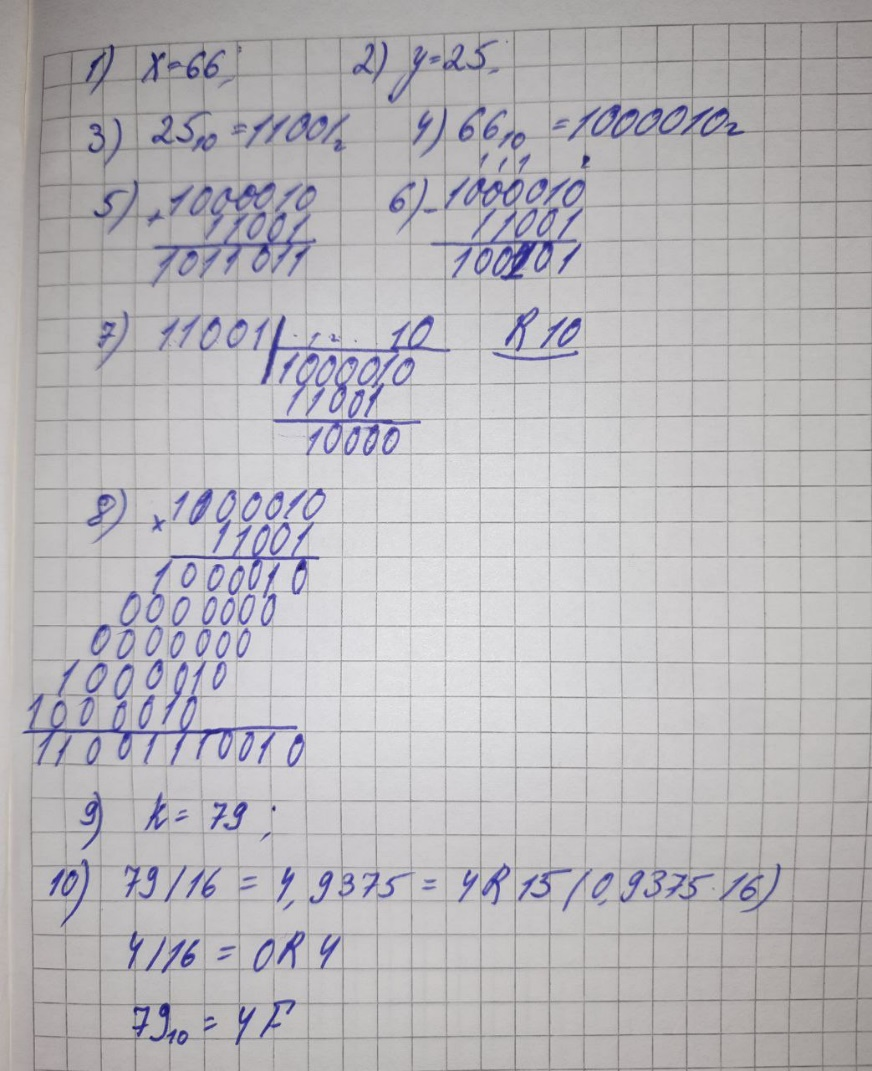 1) x=66; 2) y=25;
3) 25₁₀ =11001₂ 4) 66₁₀ =1000010₂
5) +1000010 6) -1000010
11001 11001
1011011 100101
7) 11001 10 R 10
1000010
11001
10000
8) ×1000010
11001
1000010
0000000
0000000
1000010
1000010
11001110010
9) k= 79;
10) 79/16 = 4,9375 = 4R15(0,9375·16)
4/16 = 0R4
79₁₀ = 4F